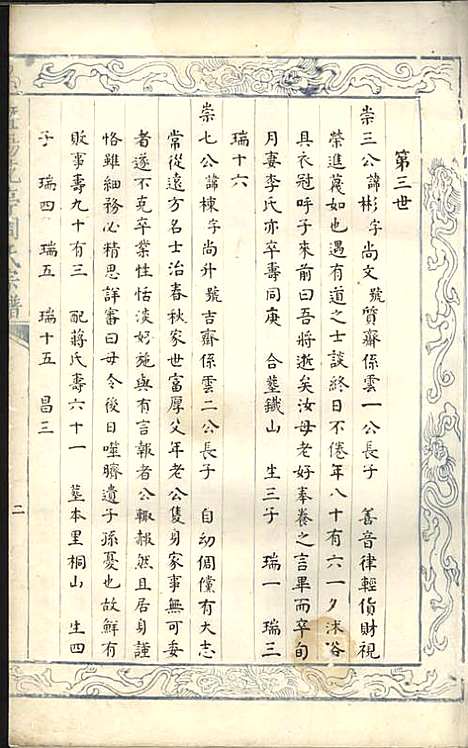 第三世
崇三公諱彬字尚文號質齋係雲一公長子 善音律輕貨財視
榮進蔑如也遇有道之士談終日不倦年八十有六一夕沐浴
具衣冠呼子來前曰吾將逝矣汝母老好奉養之言畢而卒旬
月妻李氏亦卒壽同庚 合墓鐵山 生三子 瑞一 瑞三
瑞十六
崇七公諱棟字尚升號吉齋係雲二公長子 自幼倜儻有大志
常從遠方名士治春秋家世富厚父年老公隻身家事無可委
者遂不克卒業性恬淡好施與有言報者公輒赧然且居身謹
恪雖細務必精思詳審曰毋令後日噬臍遺子孫憂也故鮮有
敗事壽九十有三 配蔣氏壽六十一 墓本里桐山 生四
子 瑞四 瑞五 瑞十五 昌三
氏宗譜
二